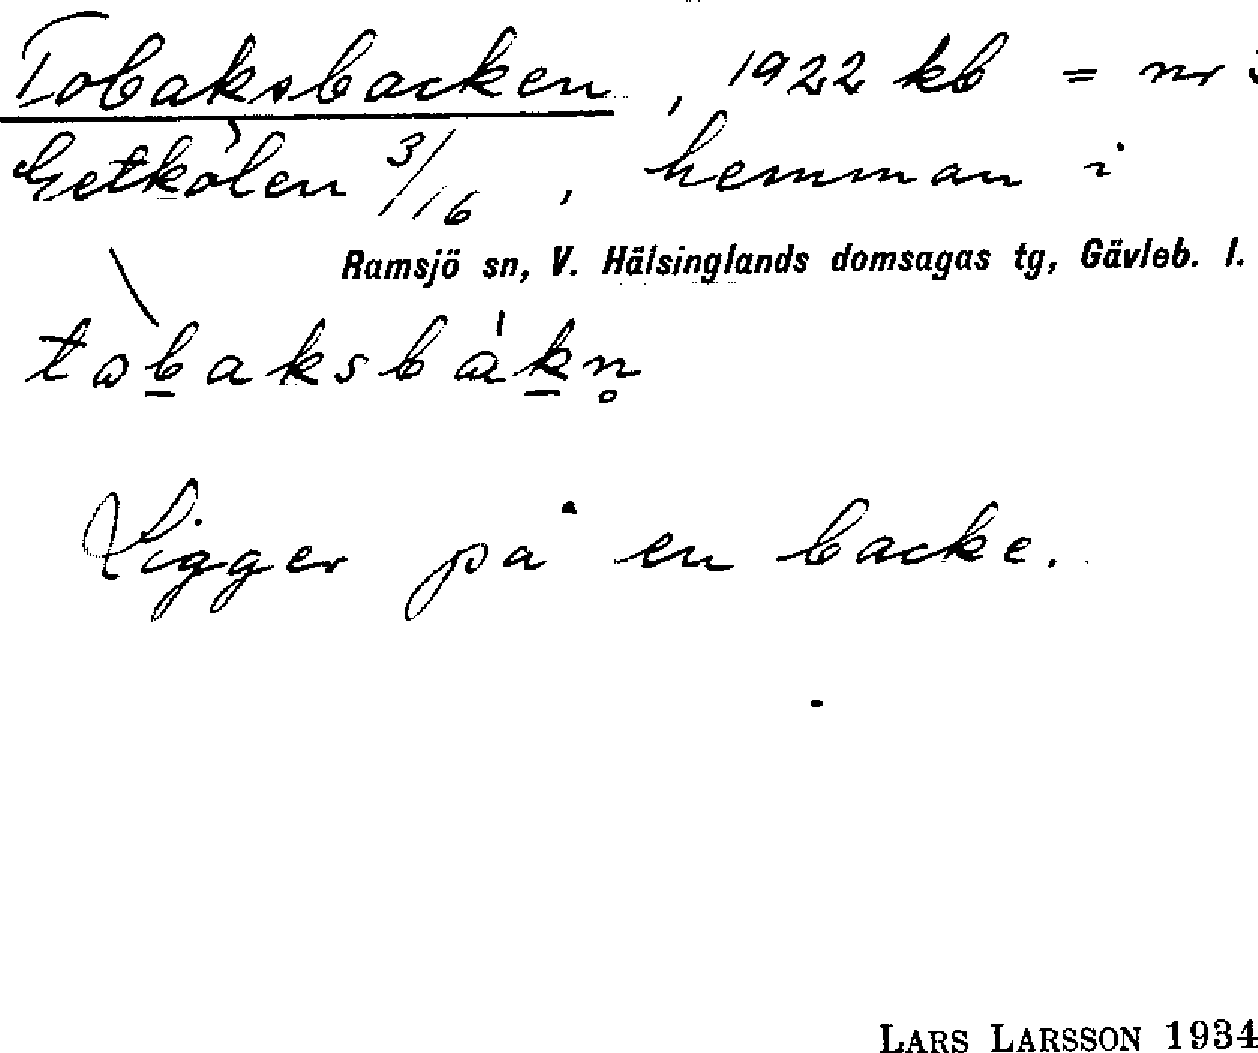 Tobaksbacken, 1922 kb = nr
Getkölen 3/16, hemman i
Ramsjö sn, V. Hälsinglands domsagas tg, Gävleb. l.
tòbaksbákn̥
Ligger på en backe.
LARS LARSSON 1934